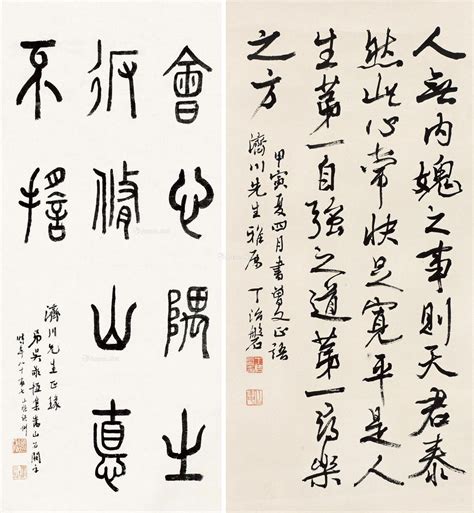 人無內媿之事則天君泰
然此心常快足寬平是人
生第一自強之道第一尋樂
之方
甲寅夏四月書曾文正語
濟川先生雅屬 丁治磐
會心隅土
脩山悳
不
濟川先生正
弟吳敬恆集嵩山石闕字
時年八十有七